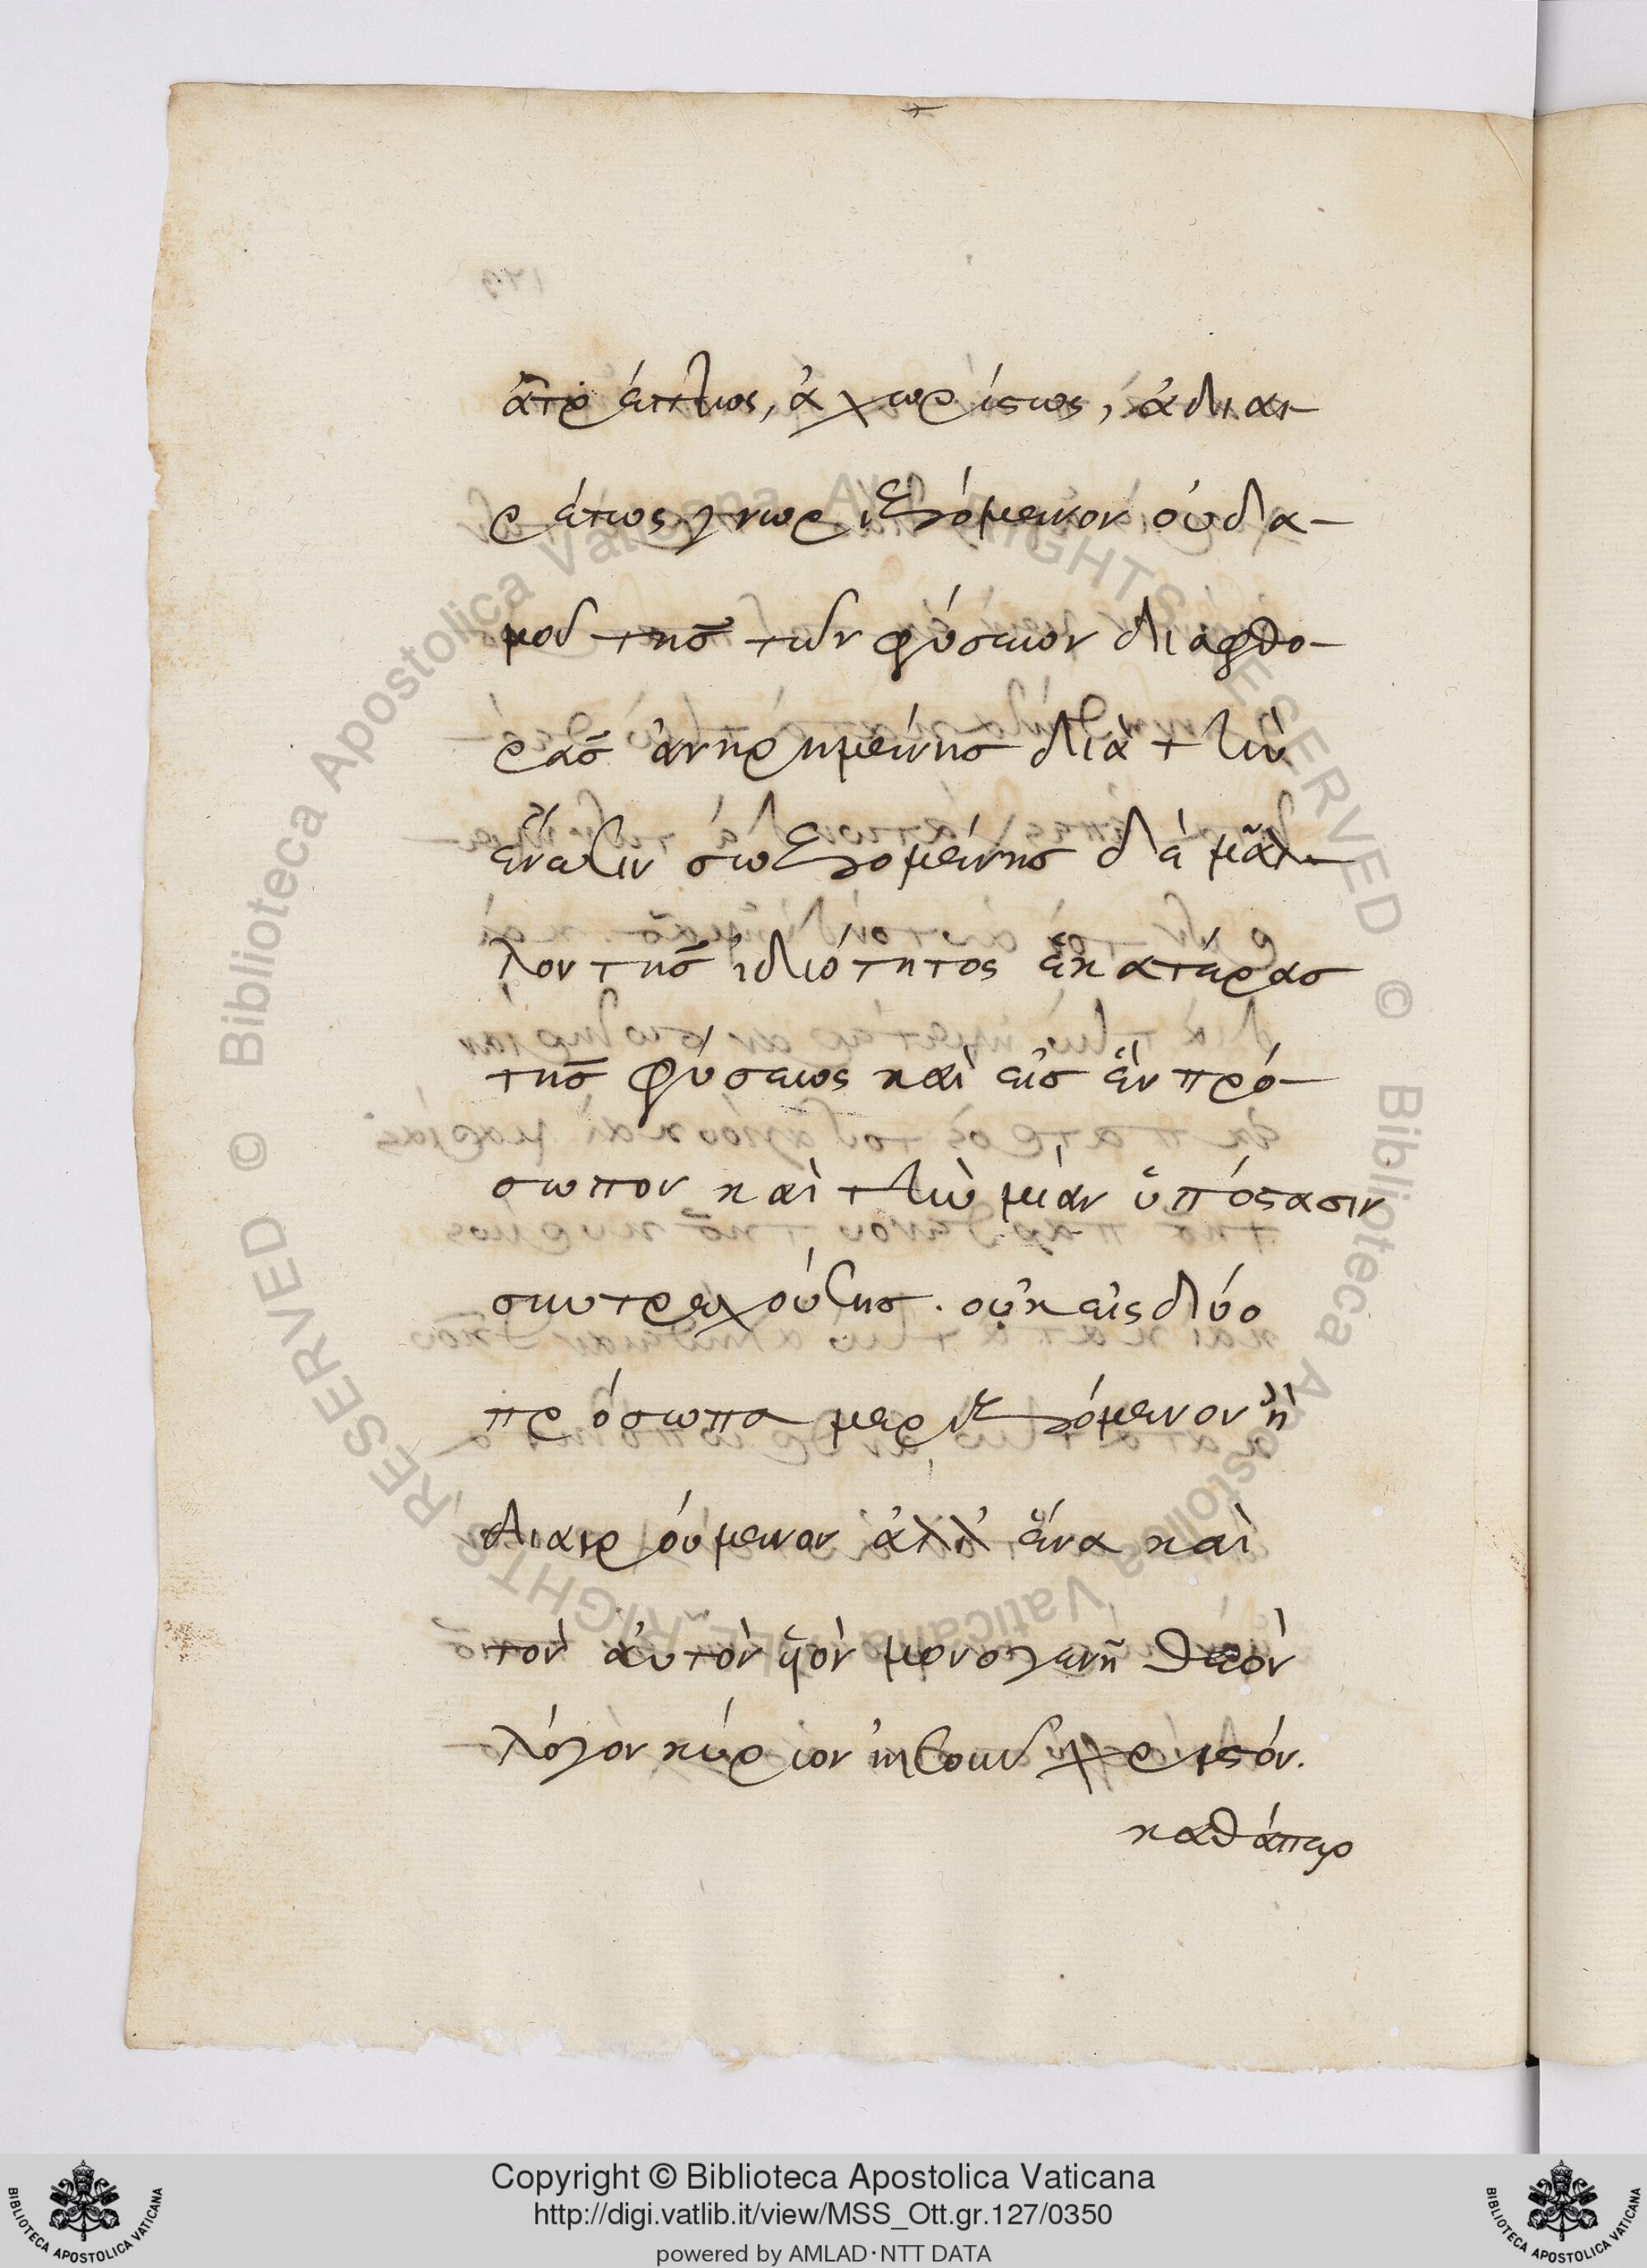 ἀτρέπτως, ἀχωρίστως, ἀδιαι-
ρέτως γνωριζόμενον οὐδα-
μοῦ τῆς τῶν φύσεων διαφθο-
ρᾶς ἀνηρημένης διὰ τὴν
ἕνωσιν σωζομένης δὲ μᾶλ-
λον τῆς ἰδιότητος ἑκατέρας
τῆς φύσεως καὶ εἰς ἓν πρό-
σωπον καὶ τὴν μίαν ὑπόστασιν
συντρεχούσης. οὐκ εἰς δύο
πρόσωπα μεριζόμενον ἢ
διαιρούμενον ἀλλ' ἕνα καὶ
τὸν αὐτὸν υἱὸν μονογενῆ θεὸν
λόγον κύριον ἰησοῦν χριστόν.
καθάπερ
Copyright © Biblioteca Apostolica Vaticana
http://digi.vatlib.it/view/MSS_Ott.gr.127/0350
powered by AMLAD·NTT DATA